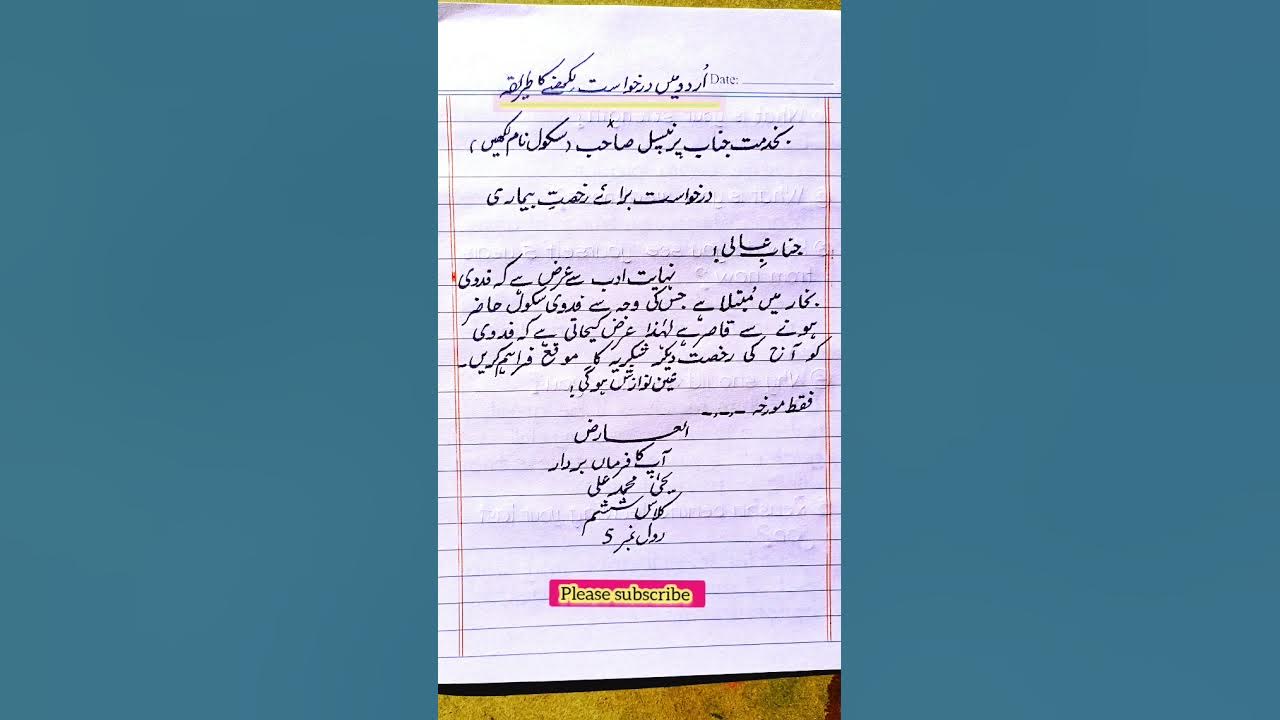 Date:
اُردو میں درخواست لکھنے کا طریقہ
بخدمت جناب پرنسپل صاحب (سکول نام لکھیں)
درخواست برائے رخصتِ بیماری
جنابِ عالی!
نہایت ادب سے عرض ہے کہ فدوی
بخار میں مُبتلا ہے جس کی وجہ سے فدوی سکول حاضر
ہونے سے قاصر ہے لہٰذا عرض کیجاتی ہے کہ فدوی
کو آج کی رخصت دیکر شکریہ کا موقع فراہم کریں۔
عین نوازش ہوگی!
فقط مورخہ -.-.-
العارض
آپ کا فرماں بردار
یحیٰ محمد علی
کلاس ششم
رول نمبر 5
Please subscribe